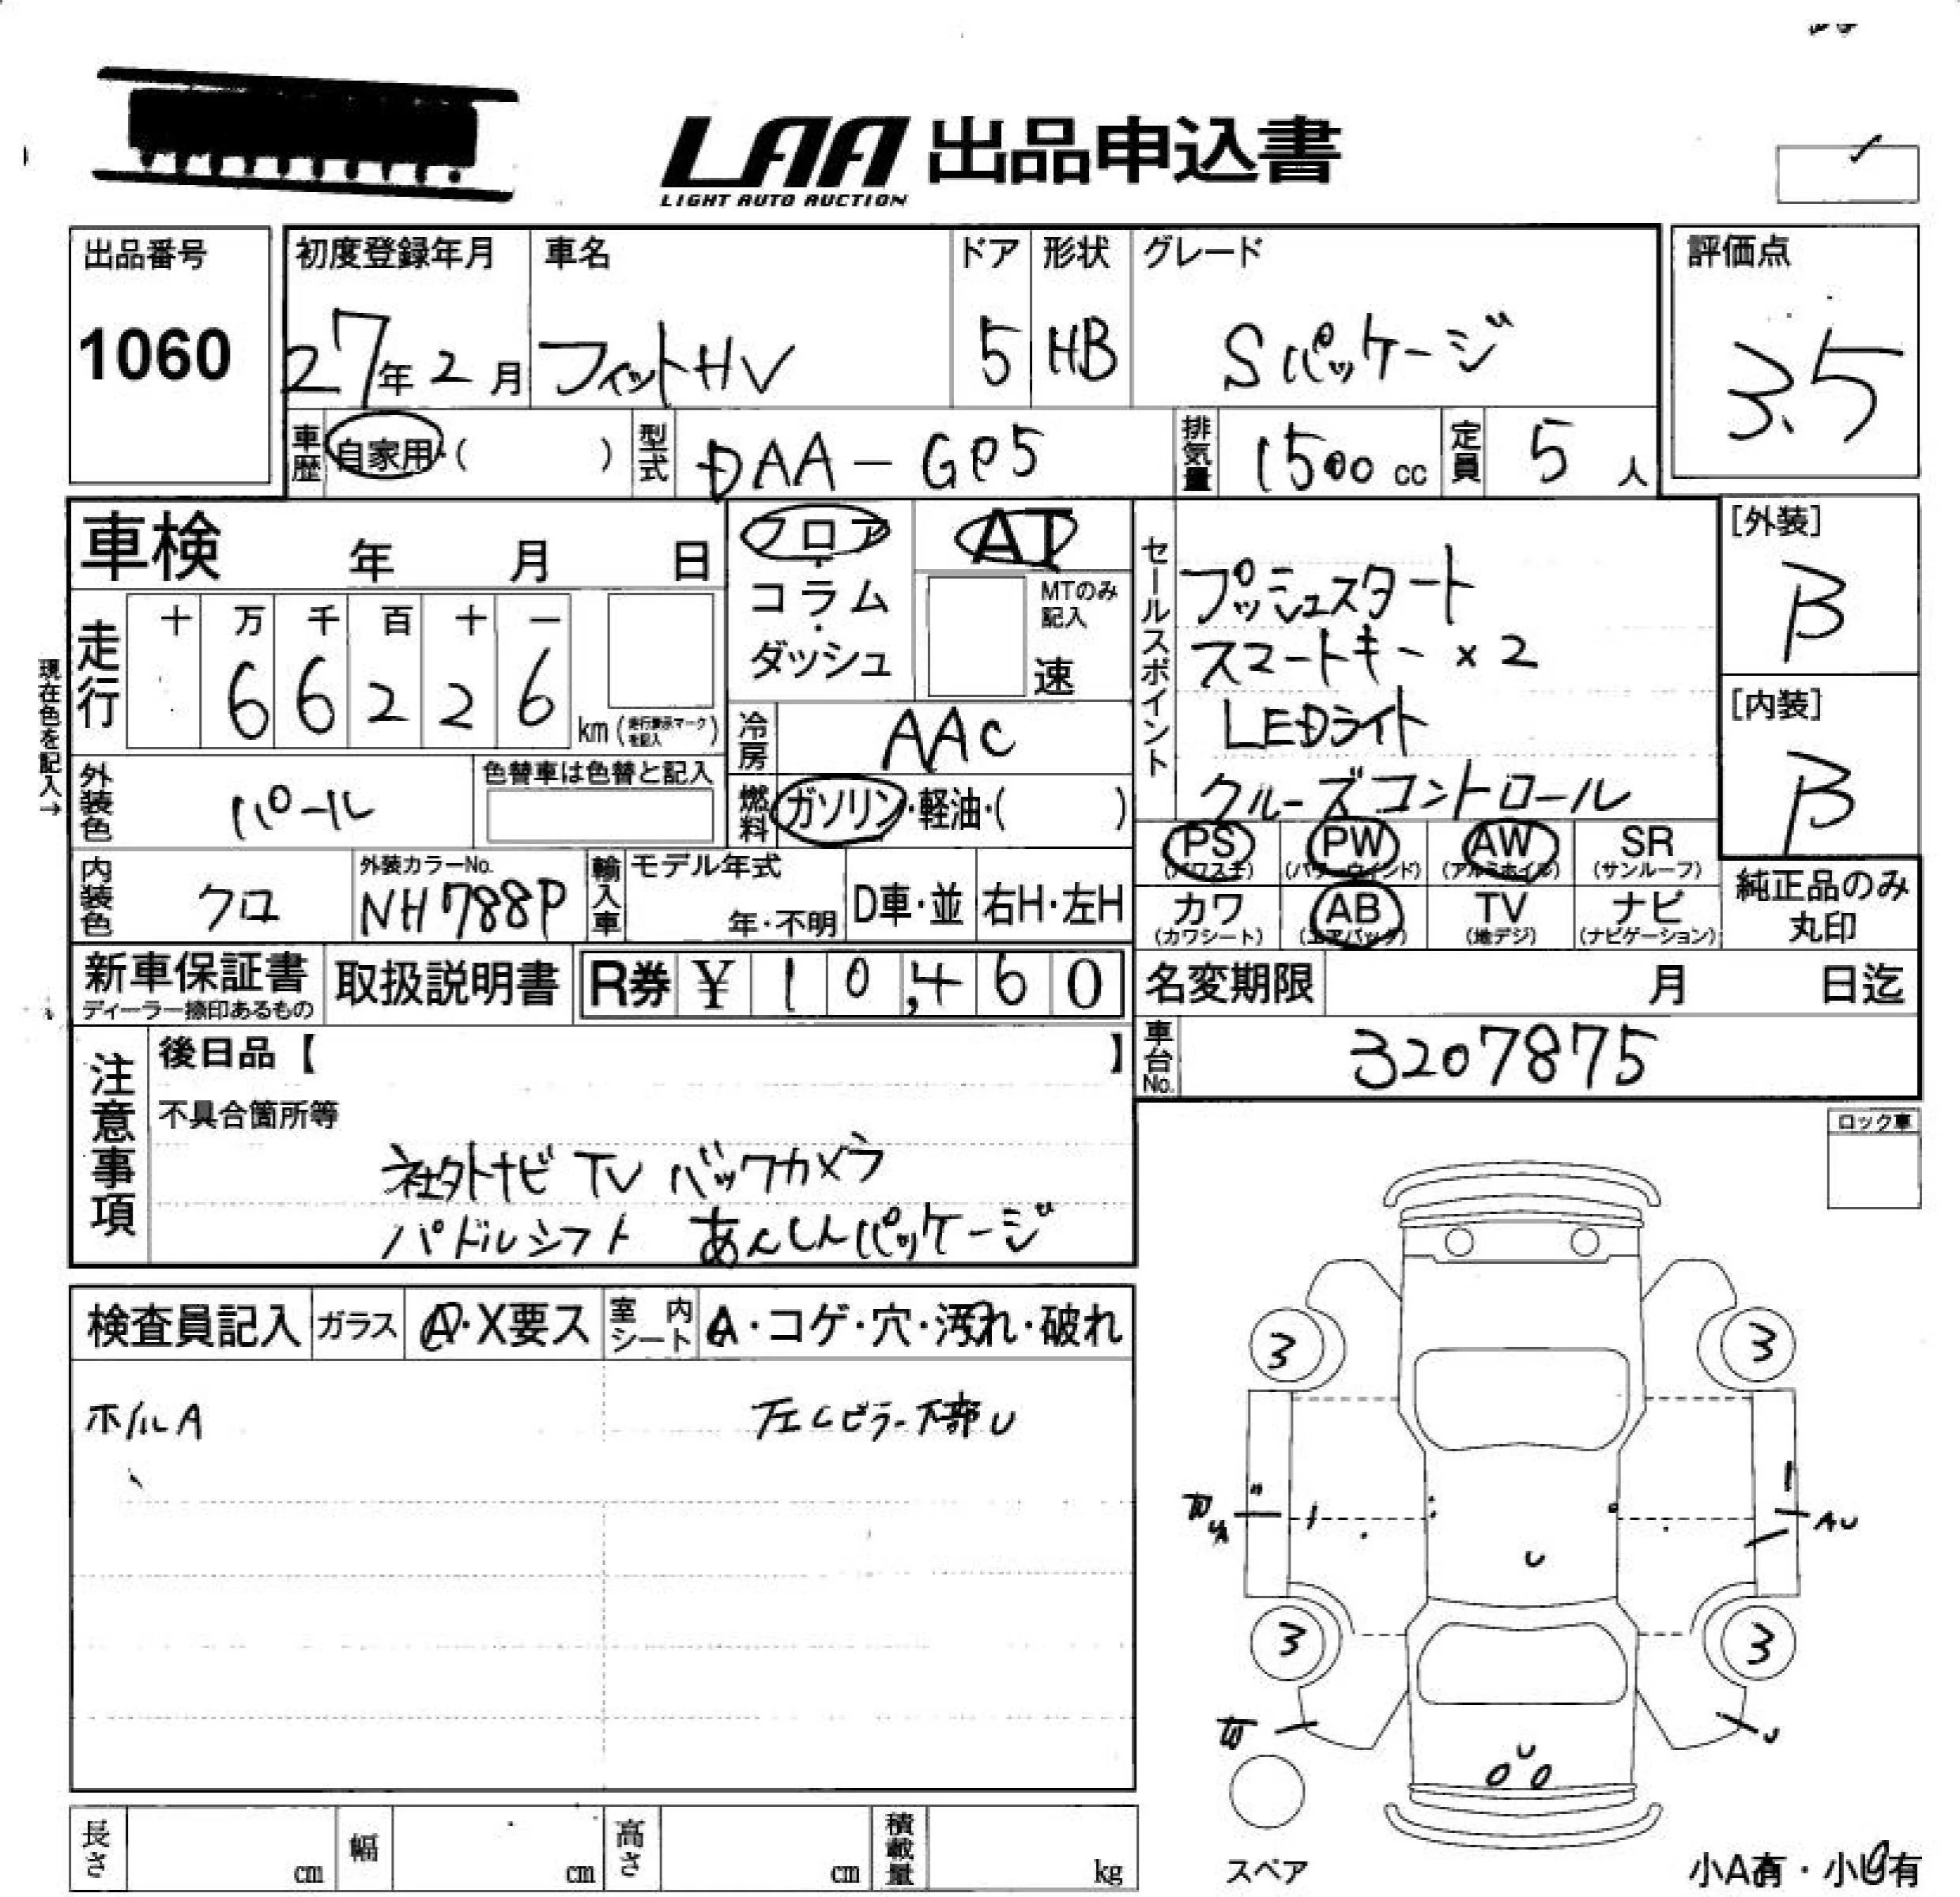 LAA 出品申込書
LIGHT AUTO AUCTION
出品番号
1060
初度登録年月
27年2月
車名
フィットHV
ドア
5
形状
HB
グレード
Sパッケージ
評価点
3.5
車歴 自家用・( )
型式 DAA-GP5
排気量 1500cc
定員 5人
車検 年 月 日
走行 十 万 千 百 十 一
66226 km (走行表示マークを記入)
現在色を記入→
フロア・コラム・ダッシュ
AT
MTのみ記入
速
冷房 AAC
燃料 ガソリン・軽油・( )
外装色 パール
色替車は色替と記入
内装色 クロ
外装カラーNo.
NH788P
輸入車 モデル年式
年・不明
D車・並
右H・左H
セールスポイント
プッシュスタート
スマートキー×2
LEDライト
クルーズコントロール
[外装]
B
[内装]
B
PS PW AW SR
(パワステ) (パワーウィンド) (アルミホイル) (サンルーフ)
カワ AB TV ナビ
(カワシート) (エアバック) (地デジ) (ナビゲーション)
純正品のみ
丸印
新車保証書
ディーラー捺印あるもの
取扱説明書
R券 ¥10,460
名変期限 月 日迄
車台No. 3207875
注意事項
後日品【 】
不具合箇所等
社外ナビ TV バックカメラ
パドルシフト あんしんパッケージ
ロック車
検査員記入 ガラス A・X要ス 室内シート A・コゲ・穴・汚れ・破れ
ホイルA
左Cピラー下部U
3 3
AU
U
3 3
U
U
スペア
小A有・小U有
長さ cm 幅 cm 高さ cm 積載量 kg